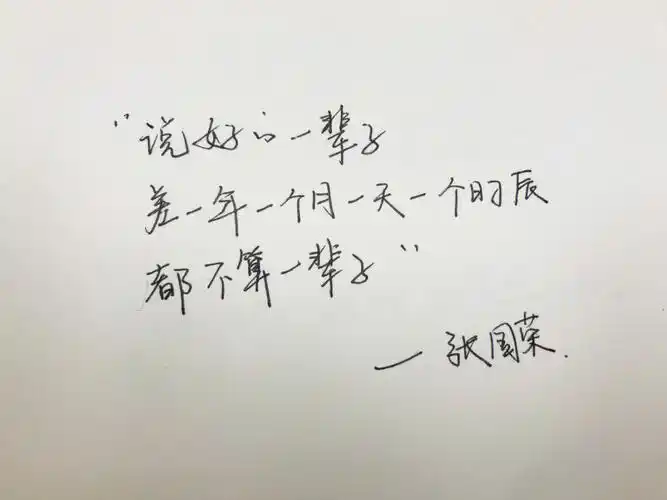 "说好的一辈子
差一年一个月一天一个时辰
都不算一辈子"
—张国荣.